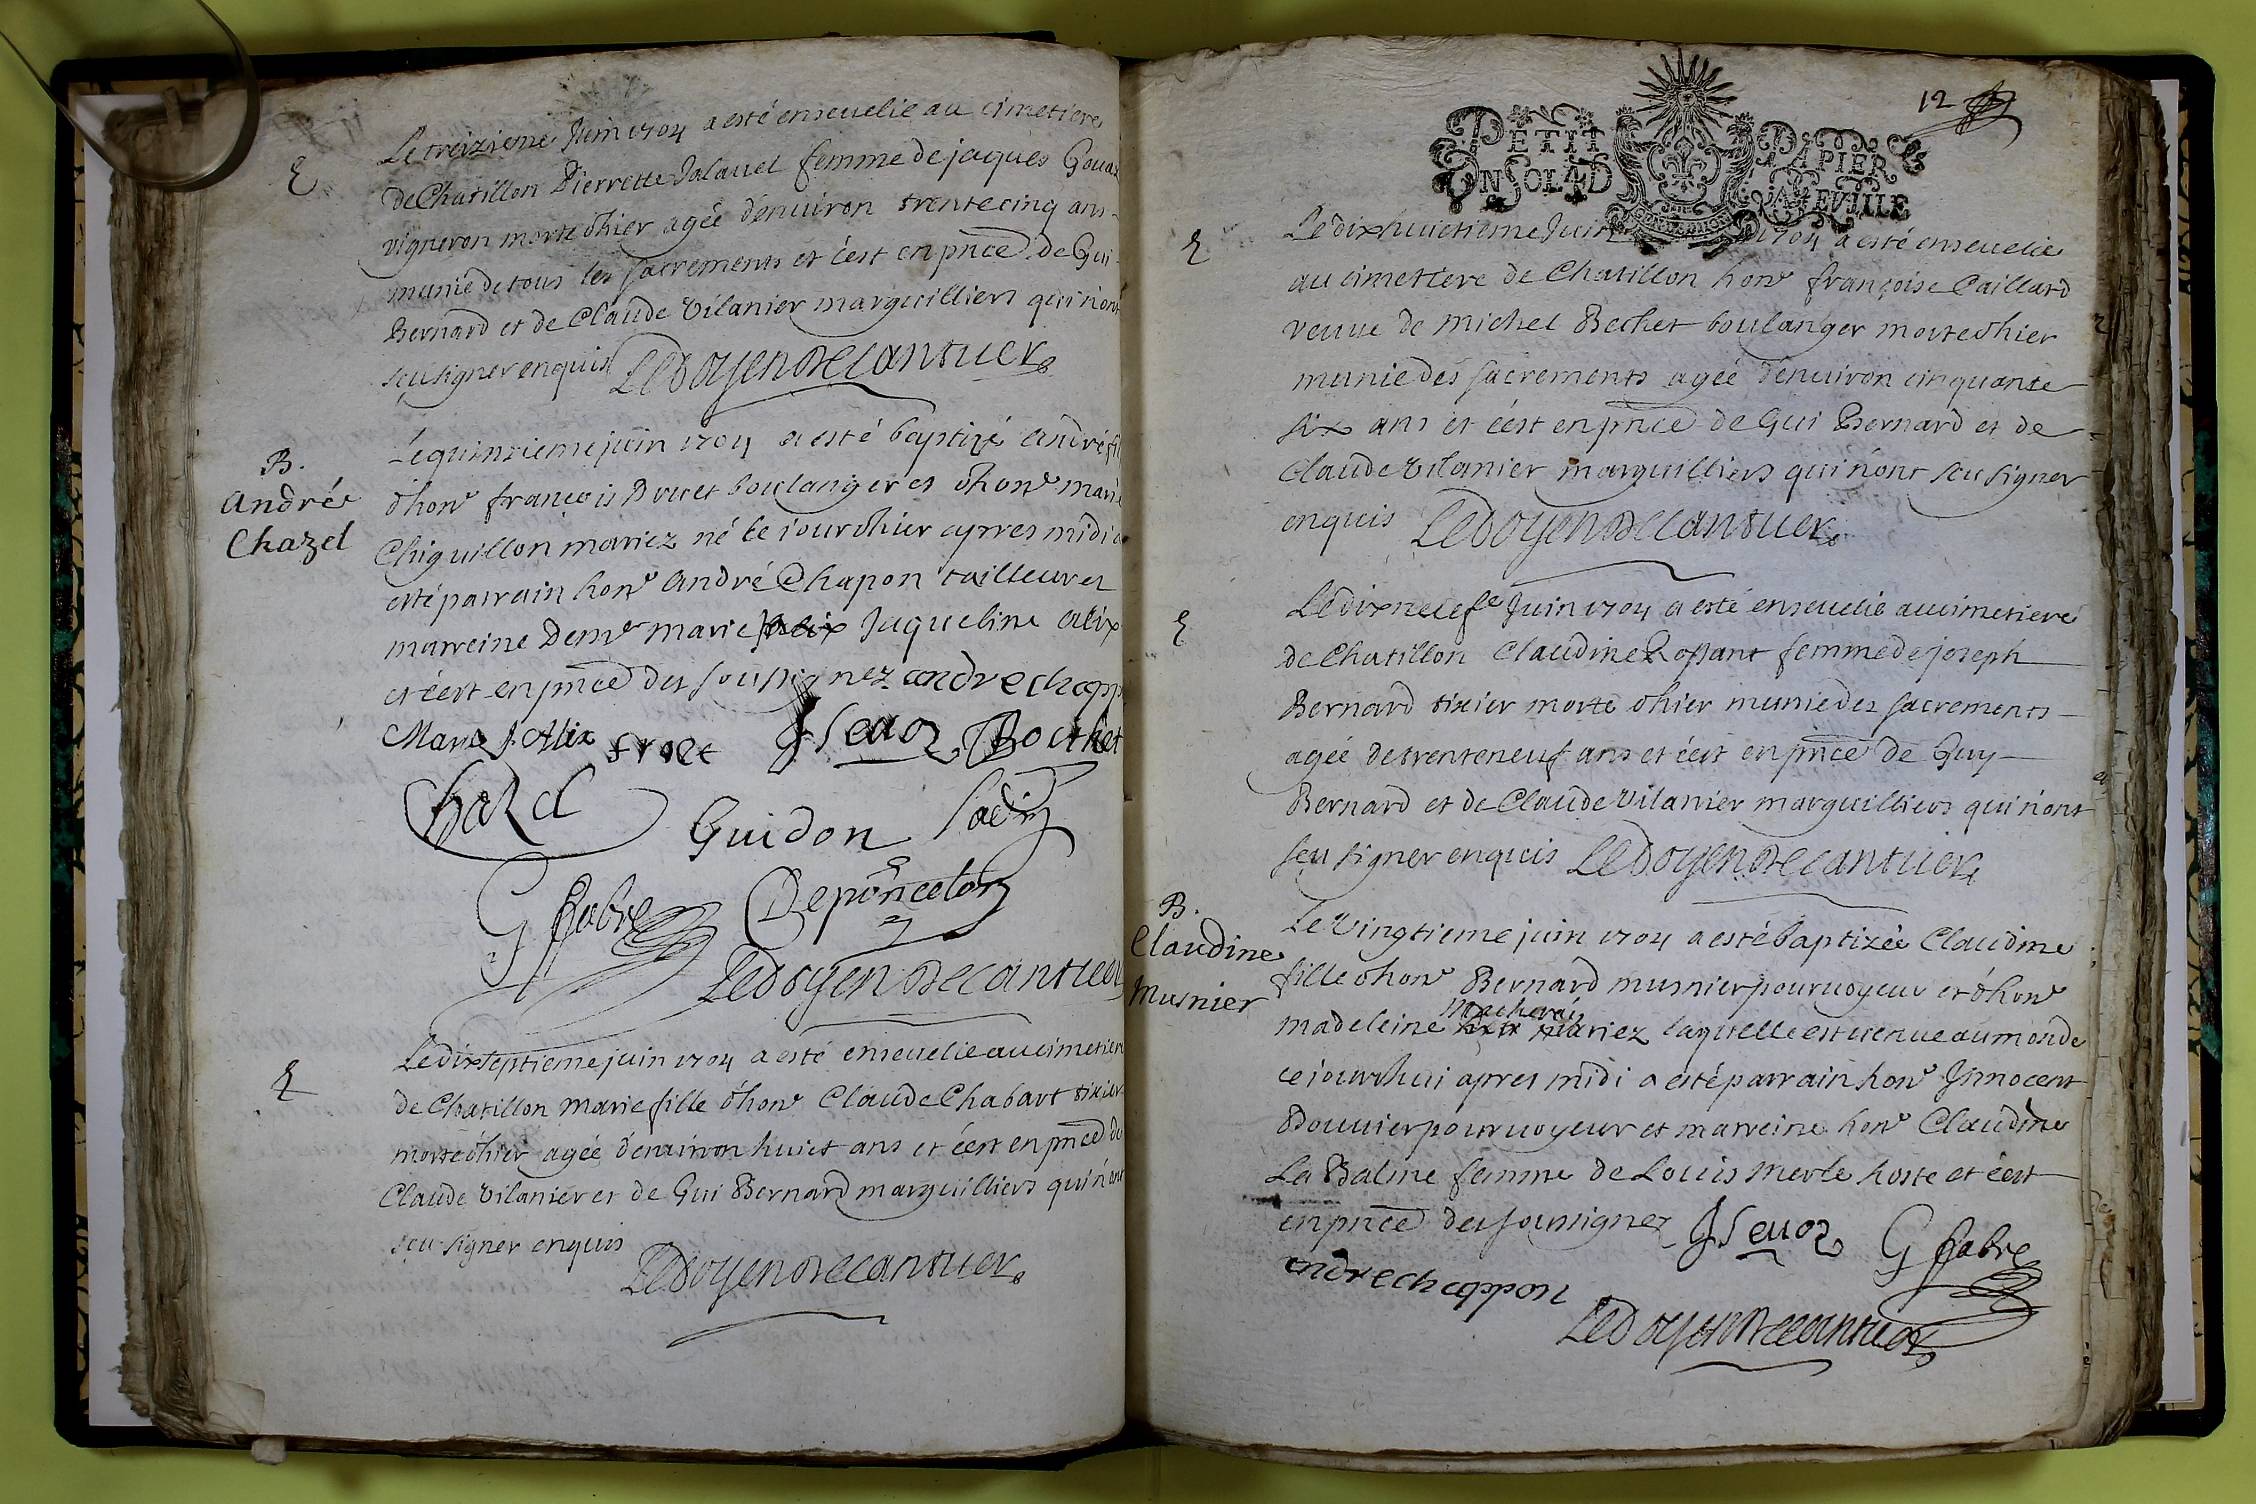 Le treizieme Juin 1704 a esté enseuelie au cimetiere
E
de Chatillon Pierrette Jalauel femme de jaques
vigneron morte d'hier agée d'enuiron trente cinq ans
munie de tous les sacrements et c'est en pnce de Gui
Bernard et de Claude Vilanier marguilliers qui n'ont
sçu signer enquis Ledoyen de Cantuer
B.
André
Chazel
Le quinzieme juin 1704 a esté baptizé André fil
d'hone françois Bruet boulanger et d'hone marie
Chiguillon mariez né le jour d'hier apres midi a
esté parrain hone André Chapon tailleur et
marreine Demle marie Jaqueline Alix
et c'est en pnce des soussignez andre chapp
Marie J. Alix frolt JSeuoz Bochet
Chazel
Guidon Sadin
G fabre Deponcelon
Ledoyen de Cantuer
E
Le dixseptieme juin 1704 a esté enseuelie au cimetiere
de Chatillon marie fille d'hone Claude Chabart tixier
morte d'hier agée d'enuiron huict ans et c'est en pnce de
Claude Vilanier et de Gui Bernard marguilliers qui n'ont
sçu signer enquis
Ledoyen de Cantuer
12
PETIT PAPIER
UN SOL 4D LA FEUILLE
E
Le dixhuictieme Juin 1704 a esté enseuelie
au cimettere de Chatillon hone françoise Caillard
veuue de Michel Bechet boulanger morte d'hier
munie des sacrements agée d'enuiron cinquante
six ans et c'est en pnce de Gui Bernard et de
Claude Vilanier marguilliers qui n'ont sçu signer
enquis Ledoyen de Cantuer
E
Le dixneufe Juin 1704 a esté enseuelie au cimetiere
de Chatillon Claudine Rossant femme de joseph
Bernard tixier morte d'hier munie des sacrements
agée de trente neuf ans et c'est en pnce de Guy
Bernard et de Claude Vilanier marguilliers qui n'ont
sçu signer enquis Ledoyen de Cantuer
B.
Claudine
Musnier
Le Vingtieme juin 1704 a esté baptizée Claudine
fille d'hone Bernard musnier pouruoyeur et d'hone
madeleine Macheray mariez laquelle est uenue au monde
ce jourd'hui apres midi a esté parrain hone Jnnocent
Bouuier pouruoyeur et marreine hone Claudine
La Balme femme de Louis Merle hoste et c'est
en pnce des soussignez JSeuoz G fabre
andre chappon
Ledoyen de Cantuer